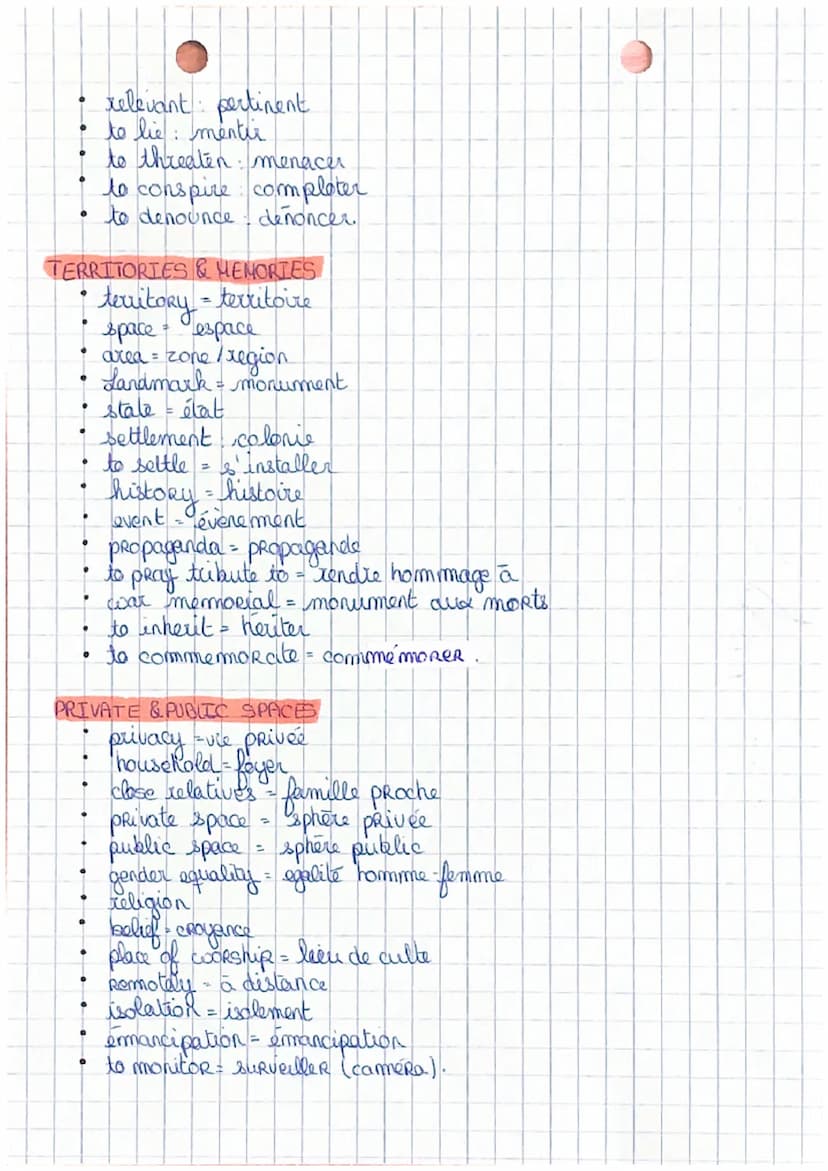 • relevant : pertinent
• to lie : mentir
• to threaten : menacer
• to conspire : comploter
• to denounce : dénoncer.
TERRITORIES & MEMORIES
• territory = territoire
• space = espace
• area = zone / region
• Landmark = monument
• state = état
• settlement : colonie
• to settle = s'installer
• history = histoire
• event = évènement
• propaganda = propagande
• to pray tribute to = rendre hommage à
• war memorial = monument aux morts
• to inherit = hériter
• to commemorate = commémorer.
PRIVATE & PUBLIC SPACES
• privacy = vie privée
• household = foyer
• close relatives = famille proche
• private space = sphère privée
• public space = sphère public
• gender equality = egalité homme-femme
• religion
• belief = croyance
• place of woorship = lieu de culte
• Remotaly = à distance
• isolation = isolement
• émancipation = émancipation
• to monitor = surveiller (caméra).